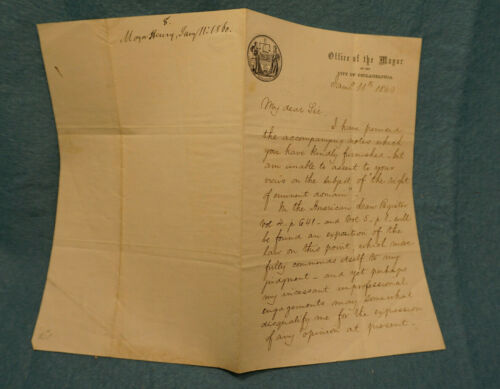 8.
Mayor Henry, Jany 11: 1860.
Office of the Mayor
OF THE
CITY OF PHILADELPHIA.
Jany 11th 1860
My dear Sir
I have perused
the accompanying notes which
you have kindly furnished - but
am unable to assent to your
views on the subject of the right
of eminent domain.
In the American Law Register
Vol 4. p 641 - and Vol 5. p 1. will
be found an exposition of the
law on this point, which more
fully commends itself to my
judgment - and yet perhaps
my incessant unprofessional
engagements may somewhat
disqualify me for the expression
of any opinion at present.